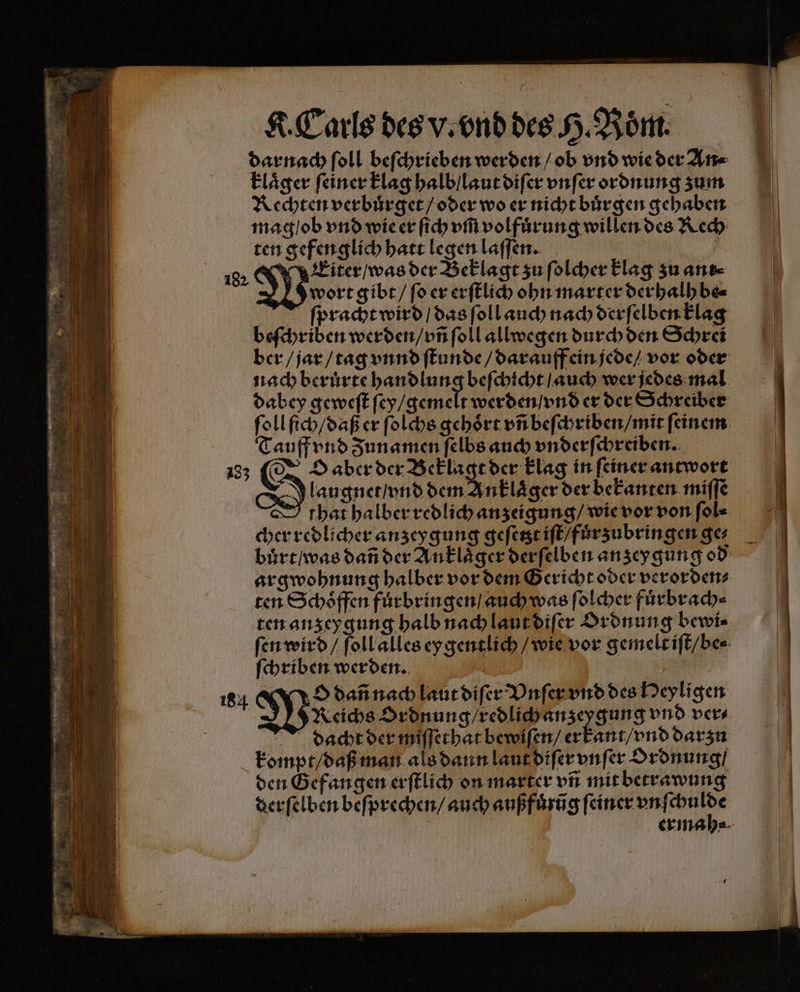 K. Carls des v. vnd des H. Roͤm.
darnach ſoll beſchrieben werden / ob vnd wie der An⸗
klaͤger ſeiner klag halb / laut diſer vnſer ordnung zum
Rechten verbuͤrget / oder wo er nicht buͤrgen gehaben
mag / ob vnd wie er ſich vm̃ volfuͤrung willen des Rech
ten gefenglich hatt legen laſſen.
182 WEiter / was der Beklagt zu ſolcher klag zu ant⸗
wort gibt / ſo er erſtlich ohn marter derhalb be⸗
ſpracht wird / das ſoll auch nach derſelben klag
beſchriben werden / vñ ſoll allwegen durch den Schrei
ber / jar / tag vnnd ſtunde / darauff ein jede / vor oder
nach beruͤrte handlung beſchicht / auch wer jedes mal
dabey geweſt ſey / gemelt werden / vnd er der Schreiber
ſoll ſich / daß er ſolchs gehoͤrt vñ beſchriben / mit ſeinem
Tauff vnd Zunamen ſelbs auch vnderſchreiben.
183 SO aber der Beklagt der klag in ſeiner antwort
laugnet / vnd dem Anklaͤger der bekanten miſſe
that halber redlich anzeigung / wie vor von ſol⸗
cher redlicher anzeygung geſetzt iſt / fuͤrzubringen ge⸗
buͤrt / was dañ der Anklaͤger derſelben anzeygung od
argwohnung halber vor dem Gericht oder verorden⸗
ten Schoͤffen fuͤrbringen / auch was ſolcher fuͤrbrach⸗
ten anzeygung halb nach laut diſer Ordnung bewi⸗
ſen wird / ſoll alles eygentlich / wie vor gemelt iſt / be⸗
ſchriben werden.
184 WO dañ nach laut diſer Vnſer vnd des Heyligen
Reichs Ordnung / redlich anzeygung vnd ver⸗
dacht der miſſethat bewiſen / erkant / vnd darzu
kompt / daß man als dann laut diſer vnſer Ordnung /
den Gefangen erſtlich on marter vñ mit betrawung
derſelben beſprechen / auch außfuͤrũg ſeiner vnſchulde
ermah⸗